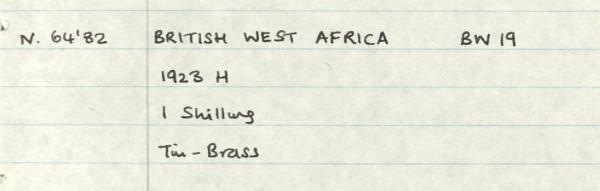 N. 64'82 BRITISH WEST AFRICA BW 19
1923 H
1 Shilling
Tin-Brass